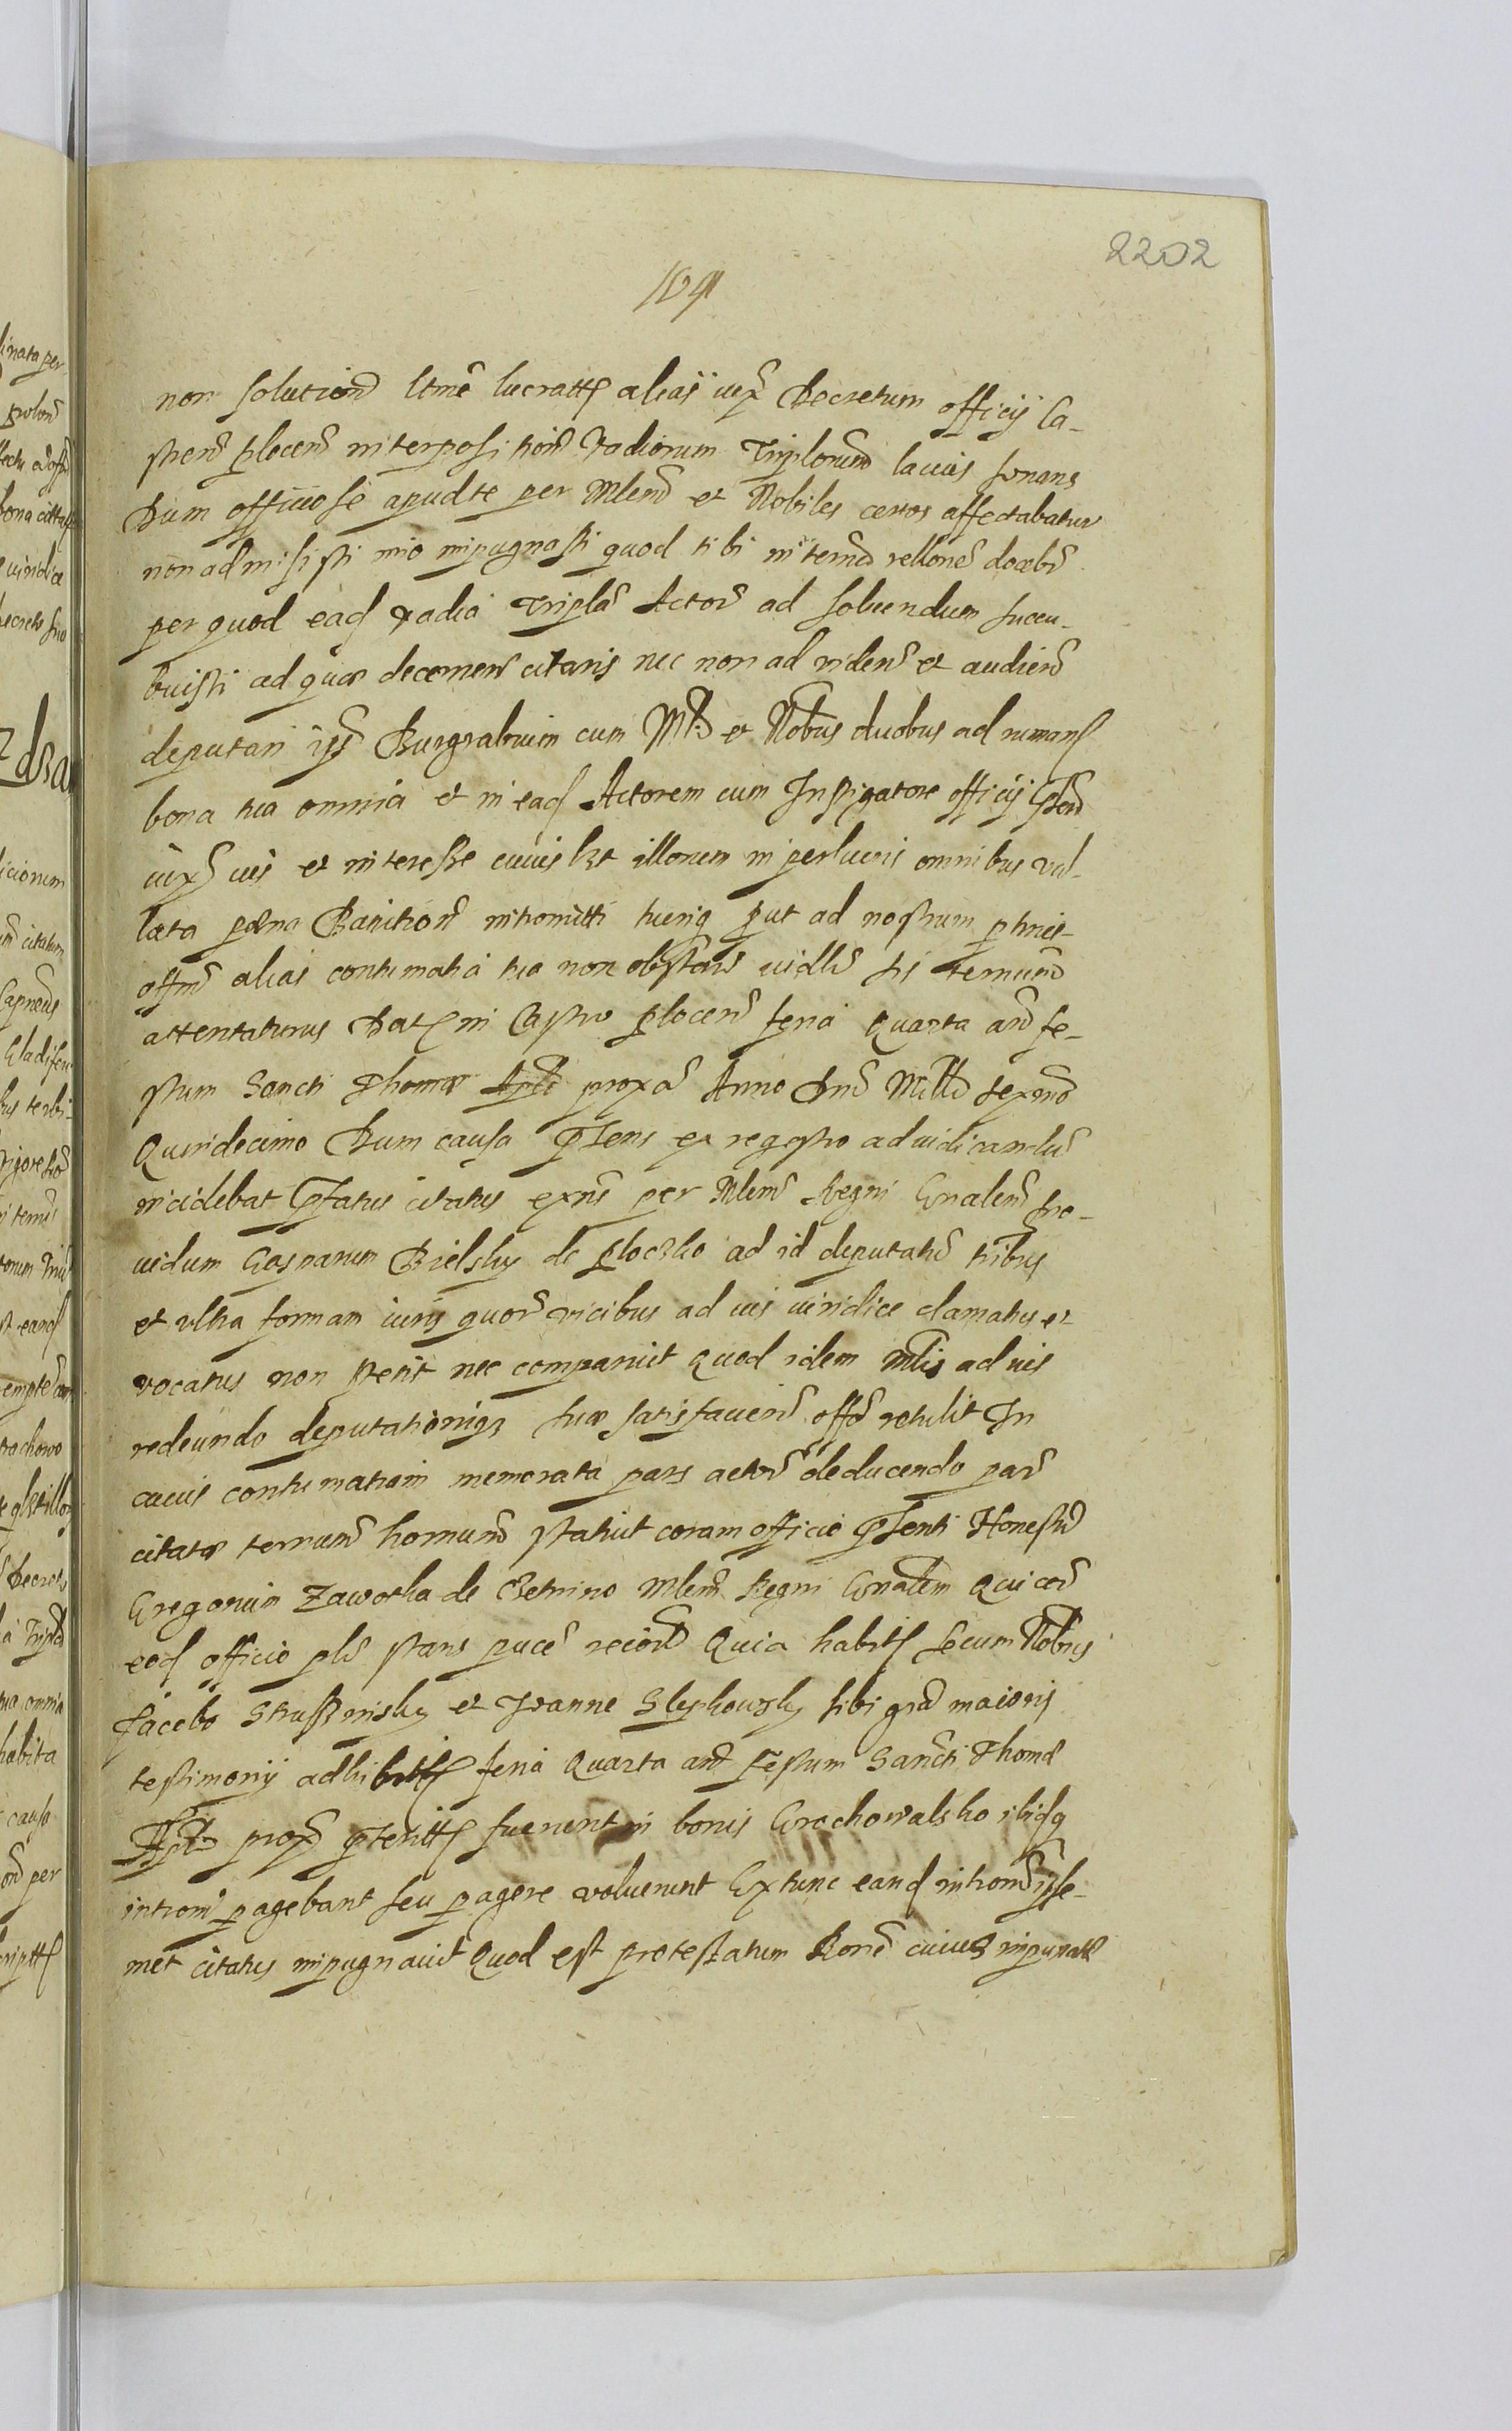 2202
109
non solution ltme lucratt alias iux Decretum officii Ca-
stren plocen interposition Vadiorum Triplorum lacius sonans
Dum officiose apud te per Mlem et Nobiles certos affectabatur
non admisisti imo impugnasti quod tibi in termo rellone docebr
per quod ead vadia Tripla Actori ad soluendum succu-
buisti ad quae decernen citaris nec non ad viden et audien
deputari ips Burgrabium cum Mli et Nobus duobus ad rumand
bona tua omnia et in ead Actorem cum Instigatore officii psen
iux ius et interesse cuiuslbt illorum in perlucris omnibus val-
lata poena Banition intromitti turiq put ad nostrum ptinet
offm alias contumatia tua non obstan iudlr sis terminum
attentaturus Dat in Castro plocen feria Quarta an fe-
stum Sancti Thomae Apli proxa Anno Dni Mille sexmo
Quindecimo Dum causa psens ex regestro ad iudicandum
incidebat pfatus citatus exns per Mlem Regni Gnalem pro-
uidum Casparum Bielsky de ploczko ad id deputatu tribus
et vltra formam iuris quor vicibus ad ius iuridice clamatus et
vocatus non stetit nec comparuit Quod idem Mlis ad ius
redeundo deputationiqz suae satisfacien offo retulit In
cuius contumatiam memorata pars actor deducendo par
citatae terminum homum statuit coram officio psenti Honestum
Gregorium Zaworka de Mlem Regni Gnalem Qui cor
eod officio pls stans puce recior Quia habitt secum Nobus
Jacobo Strusinsky et Joanne Slepkowsky sibi gra maioris
testimonij adhibitt feria Quarta an festum Sancti Thomae
Apli prox pteritt fuerunt in bonis Grochowalsko ibiqq
introm pagebant seu pagere voluerunt Extunc eand introm ipse-
met citatus impugnauit Quod est protestatum Rone cuius impugna